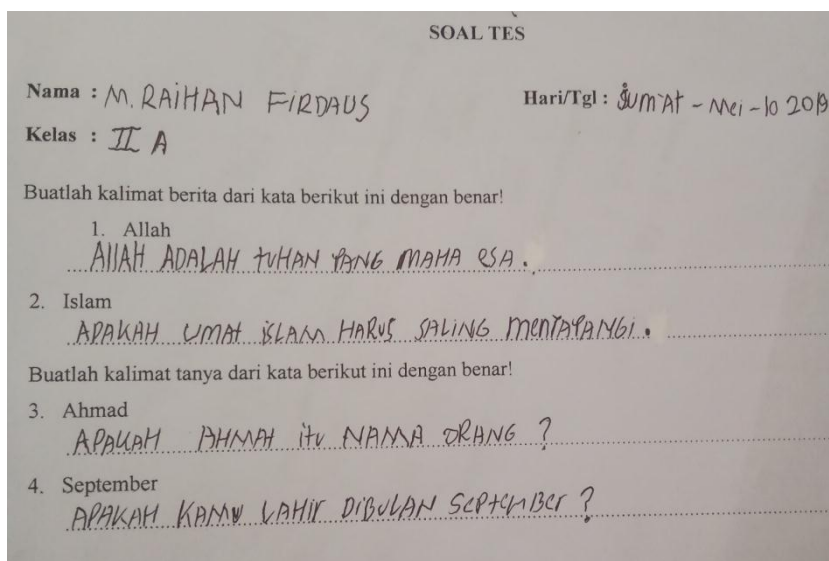 SOAL TES
Nama : M. RAiHAN FiRDAUS Hari/Tgl : JUM'At - Mei - 10 2019
Kelas : II A
Buatlah kalimat berita dari kata berikut ini dengan benar!
1. Allah
AllAH ADALAH tUHAN YANG MAHA eSA.
2. Islam
APAKAH UMAt iSLAM HARUS SALING MenYAYANGi.
Buatlah kalimat tanya dari kata berikut ini dengan benar!
3. Ahmad
APAKAH AHMAt itu NAMA ORANG ?
4. September
APAKAH KAMU LAHir DiBULAN SePteMBer ?